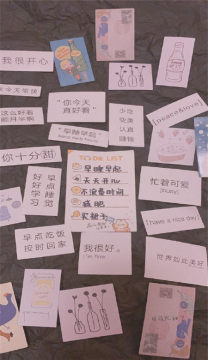 我很开心
"你今天
真好看"
少吃
快美
认真
赚钱
[peace&love]
"早睡早起"
你十分甜
TO DO LIST
早睡早起
天天开心
不浪费时间
减肥
买裙子
好好学习
早点睡觉
忙着可爱
[have a nice day]
早点吃饭
按时回家
我很好。
I'm fine
世界如此美好